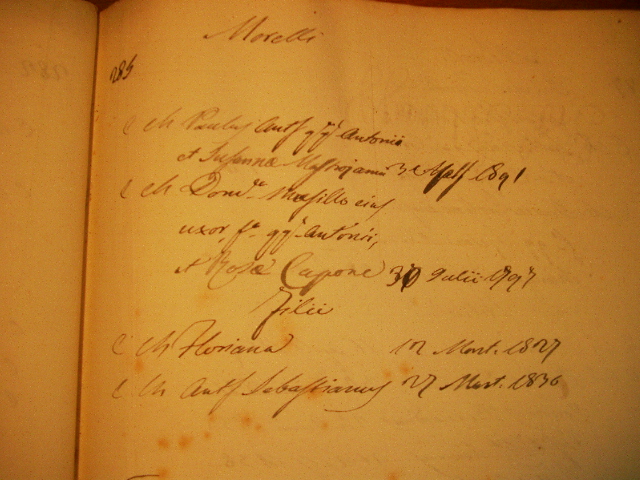 Morelli
285
C Ch Paulus Ants qq Antonii
et Susannæ Mastrojanni 30
C Ch Domca Masillo eius
uxor fa qq Antonii,
et Rosæ Capone 30 Julii 1797
Filii
C Ch Floriana 12 Mart. 1827
C Ch Ants Sebastianus 27 Mart. 1830